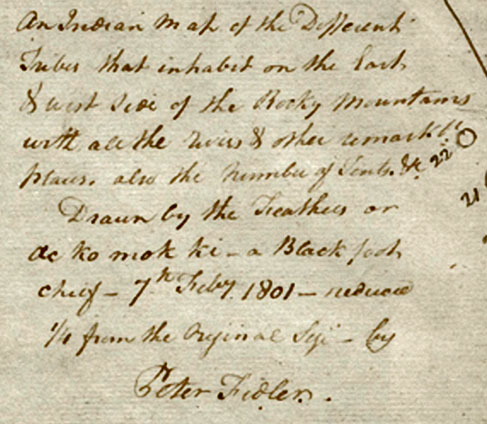 An Indian Map of the Different
Tribes that inhabit on the East
& west Side of the Rocky Mountains
with all the rivers & other remarkbl
places, also the Number of Tents &c
22
21
Drawn by the Feathers or
ac ko mok ki - a Black foot
chief - 7th Feby 1801 - reduced
1/4 from the Original Size - by
Peter Fidler.